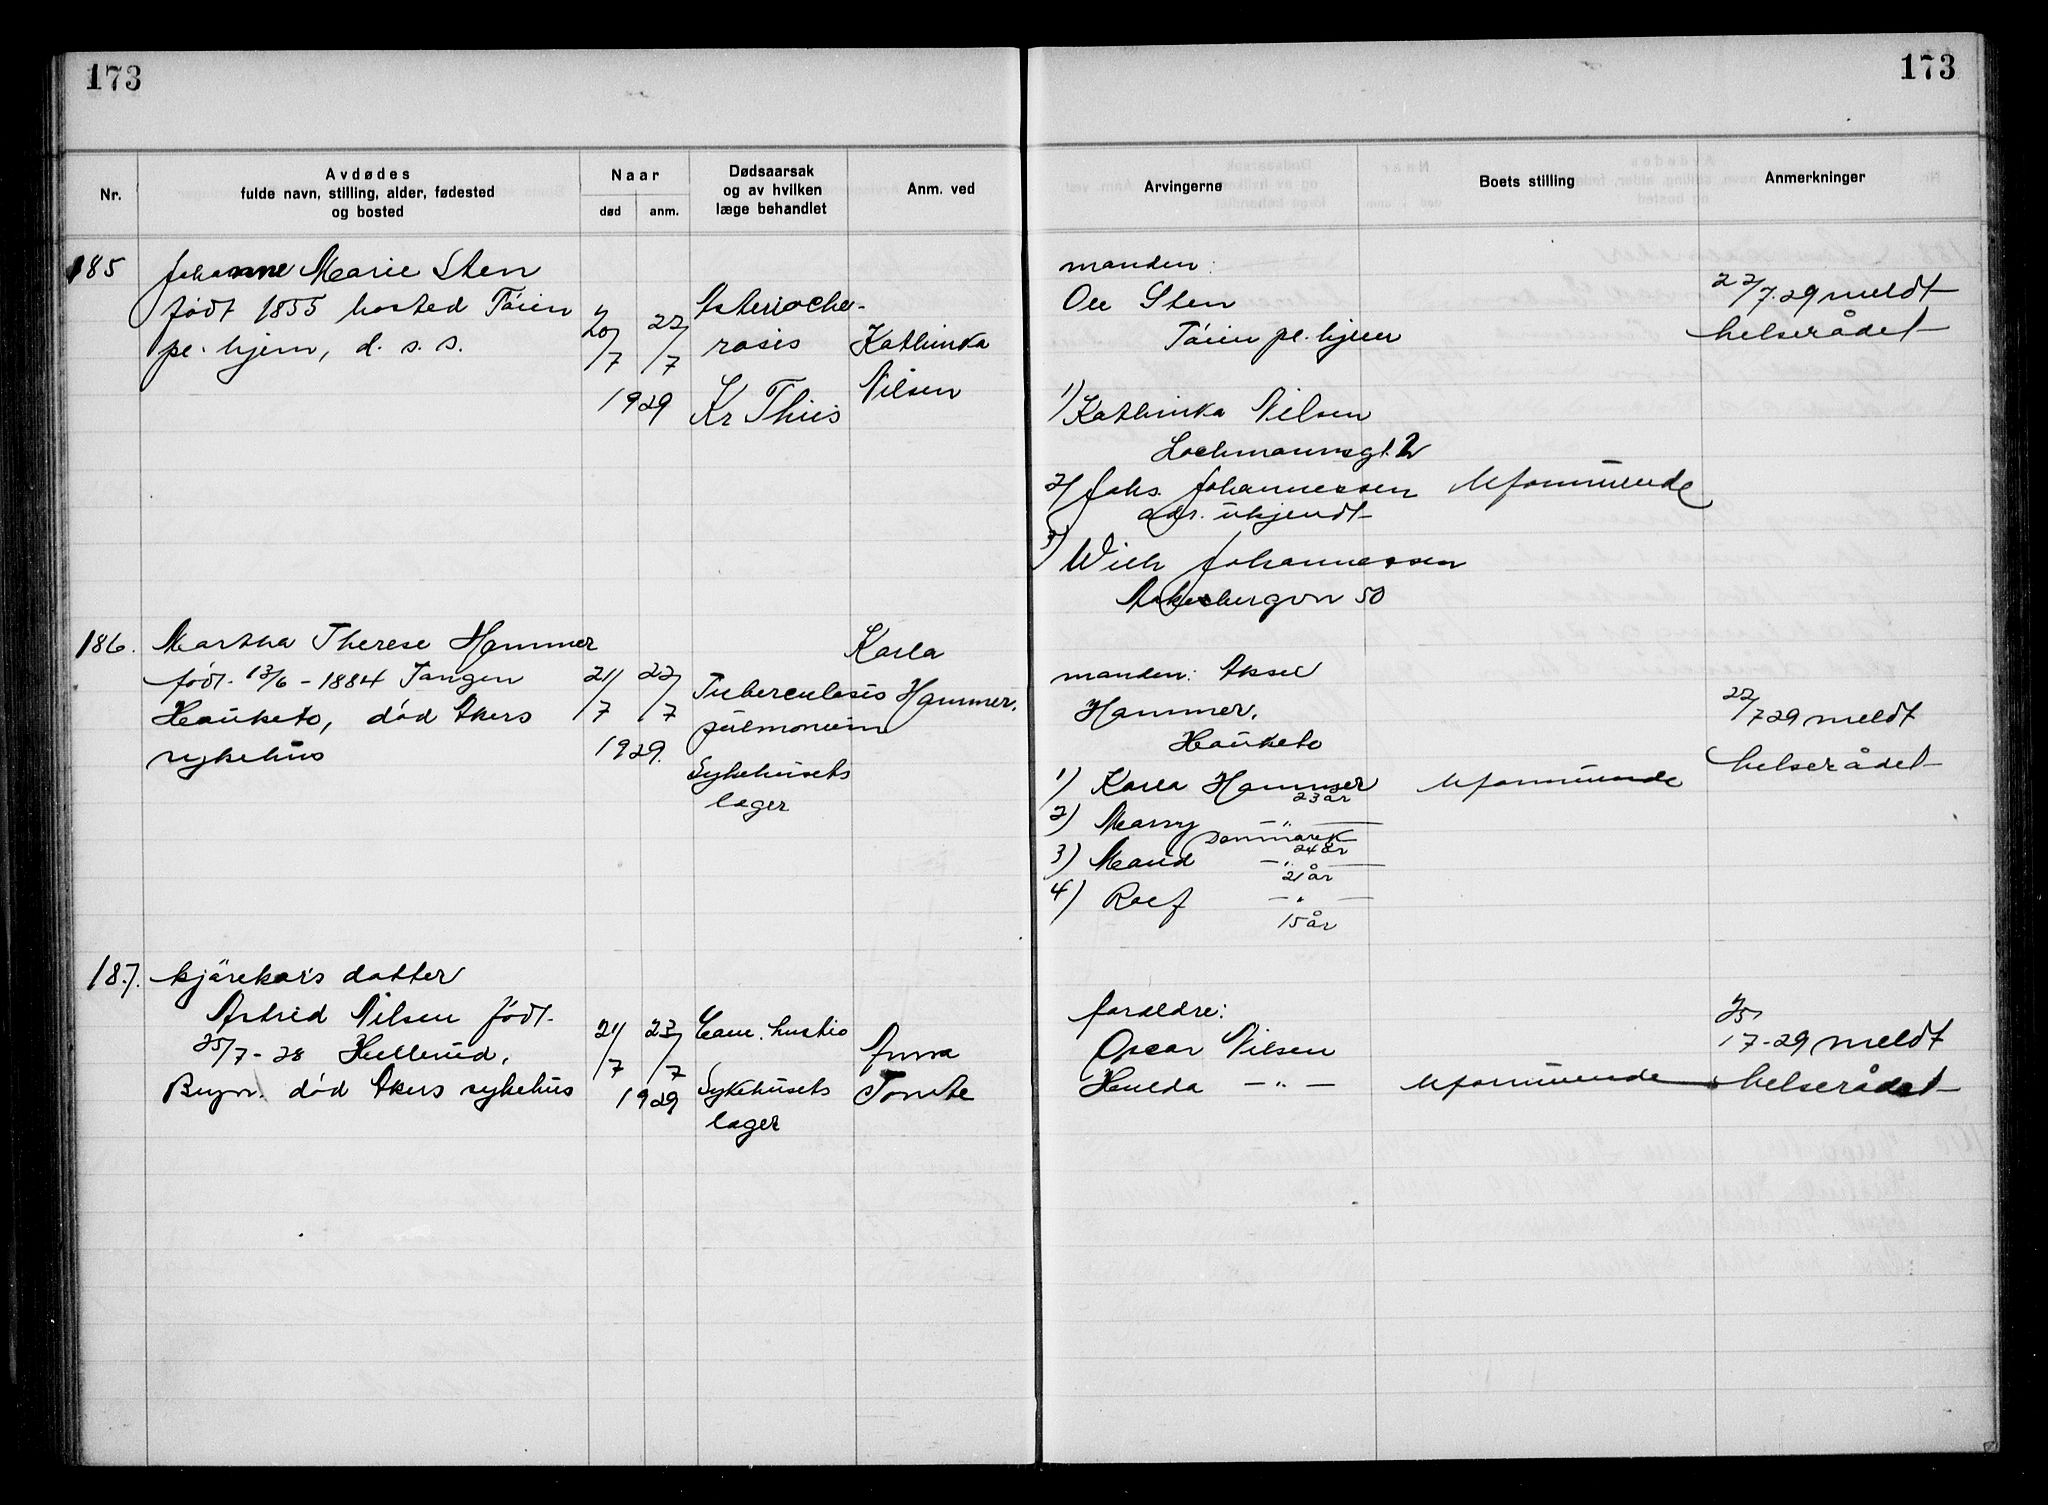 173
173
Nr.
Avdødes
fulde navn, stilling, alder, fødested
og bosted
Naar
død
anm.
Dødsaarsak
og av hvilken
læge behandlet
Anm. ved
Arvingerne
Boets stilling
Anmerkninger
185
Johanne Marie Sten
født 1855 bosted Tøien
pl. hjem, d. s. s.
20/7
22/7
1929
rosis
Kr Thiis
Kathinka
Nilsen
manden:
Ole Sten
Tøien pl. hjem
1) Kathinka Nilsen
Lochmannsgt. 2
2) Johs. Johannessen
adr. ukjendt
3) Wilh Johannessen
Akersbergvn 50
Uformuende
22/7.29 meldt
helserådet
186.
Martha Therese Hammer
født. 13/6 - 1884 Tangen
Hauketo, død Akers
sykehus
21/7
22/7
1929.
Tuberculosis
pulmonum
Sykehusets
læger
Karla
Hammer.
manden: Aksel
Hammer.
Hauketo
1) Karla Hammer
23 år
2) Marry —"—
Danmark
24 år
3) Maud —"—
21 år
4) Rolf —"—
15 år
Uformuende
22/7 29 meldt
helserådet
187.
kjørekars datter
Astrid Nilsen født.
25/7 - 28 Hellerud,
Bryn. død Akers sykehus
21/7
23/7
1929
Sykehusets
læger
Anna
Tomte
foreldre:
Oscar Nilsen
Hulda —"—
Uformuende
25/7-29 meldt
helserådet